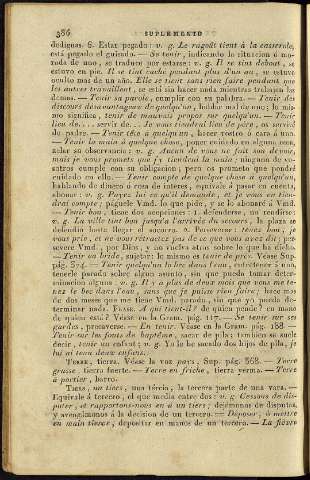 386 SUPLEMENTO
dedignas. S. Estar pegado: v. g. Le ragoût tient à la casserole,
está pegado el guisado. — Se tenir, indicando la situacion ó mo-
rada de uno, se traduce por estarse: v. g. Il se tint debout, se
estuvo en pie. Il se tint caché pendant plus d'un an, se estuvo
oculto mas de un año. Elle se tient sans rien faire pendant que
les autres travaillent, se está sin hacer nada mientras trabajan las
demas. — Tenir sa parole, cumplir con su palabra. — Tenir des
discours désavantageux de quelqu'un, hablar mal de uno; lo mis-
mo significa, tenir de mauvais propos sur quelqu'un. — Tenir
lieu de... servir de... Je vous tiendrai lieu de père, os serviré
de padre. — Tenir tête à quelqu'un, hacer rostro o cara á uno.
— Tenir la main à quelque chose, poner cuidado en alguna cosa,
zelar su observancia: v. g. Aucun de vous ne fait son devoir,
mais je vous promets que j'y tiendrai la main; ninguno de vo-
sotros cumple con su obligacion; pero os prometo que pondré
cuidado en ello. — Tenir compte de quelque chose à quelqu'un,
hablando de dinero ó cosa de interes, equivale á pasar en cuenta,
abonar: v. g. Payez lui ce qu'il demande, et je vous en tien-
drai compte; páguele Vmd. lo que pide, y se lo abonaré á Vmd.
— Tenir bon, tiene dos acepciones: 1. defenderse, no rendirse:
v. g. La ville tint bon jusqu'à l'arrivée du secours, la plaza se
defendió hasta llegar el socorro. 2. Perseverar: tenez bon, je
vous prie, et ne vous rétractez pas de ce que vous avez dit; per-
severe Vmd., por Dios, y no vuelva atras sobre lo que ha dicho.
— Tenir en bride, sujetar: lo mismo es tenir de près. Véase Sup.
pág. 574. — Tenir quelqu'un le bec dans l'eau, entretener á uno,
tenerle parado sobre algun asunto, sin que pueda tomar deter-
minacion alguna: v. g. Il y a plus de deux mois que vous me te-
nez le bec dans l'eau, sans que je puisse rien faire; hace mas
de dos meses que me tiene Vmd. parado, sin que yo pueda de-
terminar nada. Véase. — A quoi tient-il? de quién pende? en mano
de quién está? Véase en la Gram. pág. 117. — Se tenir sur ses
gardes, precaverse. — En tenir. Véase en la Gram. pág. 188. —
Tenir sur les fonts de baptême, sacar de pila: tambien se suele
decir, tenir un enfant: v. g. Yo le he sacado dos hijos de pila, je
lui ai tenu deux enfants.
Terre, tierra. Véase la voz pays, Sup. pág. 568. — Terre
grasse, tierra fuerte. — Terre en friche, tierra yerma. — Terre
à potier, barro.
Tiers, un tiers, una tércia, la tercera parte de una vara. —
Equivale á tercero, el que media entre dos: v. g. Cessons de dis-
puter, et rapportons-nous en à un tiers; dejémonos de disputas,
y avengámonos á la decision de un tercero. — Déposer, ó mettre
en main tierce, depositar en manos de un tercero. — La fièvre